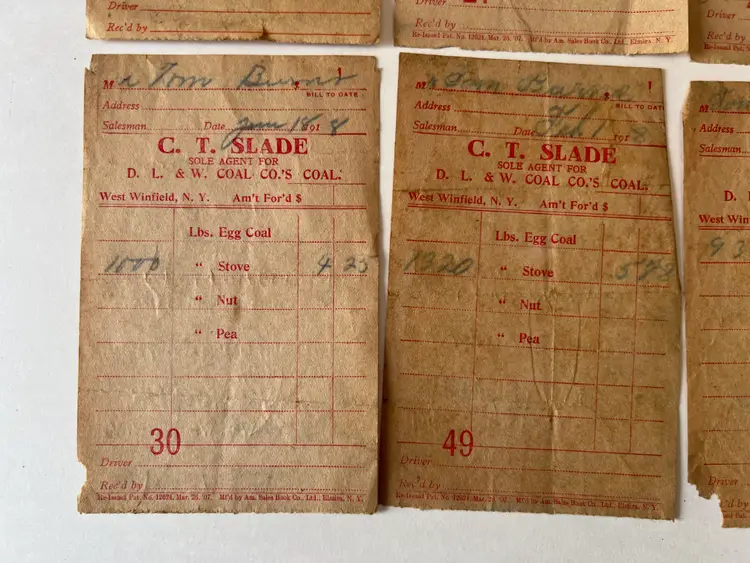 Driver
Rec'd by
Re-Issued Pat. No. 12624, Mar. 26, '07. Mf'd by Am. Sales Book Co., Ltd., Elmira, N. Y.
Mr Tom Burns $
BILL TO DATE
Address
Salesman Date Jan 18 191 8
C. T. SLADE
SOLE AGENT FOR
D. L. & W. COAL CO.'S COAL.
West Winfield, N. Y. Am't For'd $
Lbs. Egg Coal
1000 “ Stove 4 25
“ Nut
“ Pea
30
Driver
Rec'd by
Re-Issued Pat. No. 12624, Mar. 26, '07. Mf'd by Am. Sales Book Co., Ltd., Elmira, N. Y.
Mr Tom
BILL TO DATE
Address
Salesman Date Feb 1 191 8
C. T. SLADE
SOLE AGENT FOR
D. L. & W. COAL CO.'S COAL.
West Winfield, N. Y. Am't For'd $
Lbs. Egg Coal
1320 “ Stove 5
“ Nut
“ Pea
49
Driver
Rec'd by
Re-Issued Pat. No. 12624, Mar. 26, '07. Mf'd by Am. Sales Book Co., Ltd., Elmira, N. Y.
Address
Salesman
D. L
West Win
93